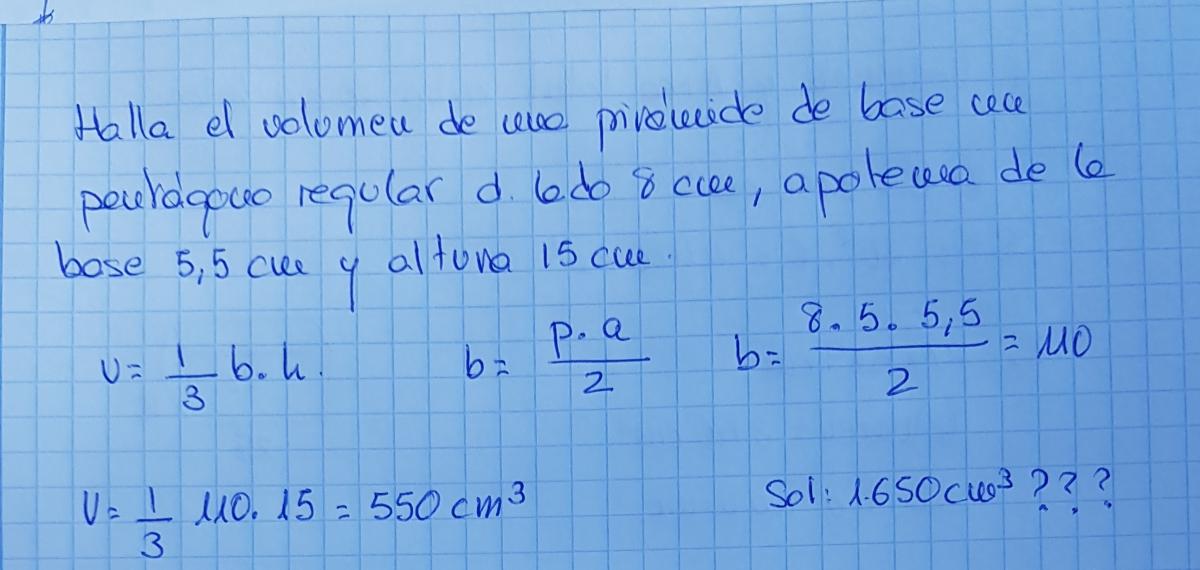 Halla el volumen de una pirámide de base un
pentágono regular d. lado 8 cm, apotema de la
base 5,5 cm y altura 15 cm.
V = 1/3 b.h. b = p.a/2 b = 8.5.5,5/2 = 110
V = 1/3 110.15 = 550 cm³ Sol: 1.650 cm³ ? ? ?